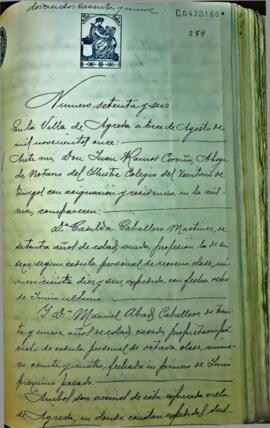 doscientos sesenta y nueve
C.0.432.166*
269
Numero setenta y seis
En la Villa de Agreda a trece de Agosto de
mil novecientos once:
Ante mi, Don Juan Ramos Aboga
do Notario del Ilustre Colegio del Territorio de
Burgos con asignacion y residencia en la mis
ma, comparecen:
Dª Casilda Caballero Martinez, de
setenta años de edad, viuda, profesion la de su
sexo, segun cedula personal de novena clase, nu
mero ciento diez y seis expedida con fecha ocho
de Junio ultimo.
Y Dⁿ Manuel Abad Caballero, de trein
ta y nueve años de edad, casado, propietario, pro
visto de cedula personal de octava clase, nume
ro ciento y cuatro, fechada en primero de Junio
proximo pasado.
Ambos son vecinos de esta expresada villa
de Agreda, en donde constan expedidas sus